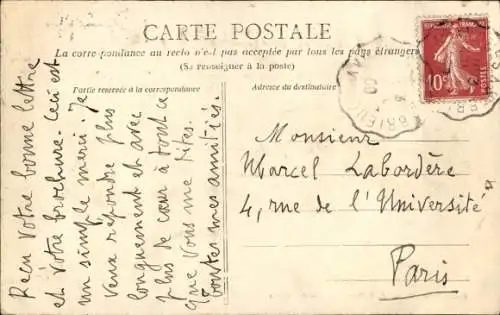 CARTE POSTALE
La correspondance au recto n'est pas acceptée par tous les pays étrangers
(Se renseigner à la poste)
Partie réservée à la correspondance
Adresse du destinataire
Reçu votre bonne lettre
et votre brochure. Ceci est
un simple merci. Je
veux répondre plus
longuement et avec
plus de cœur à tout ce
que vous me dites.
toutes mes amitiés.
Monsieur
Marcel Labordère
4, rue de l'Université
Paris
10c
POSTES